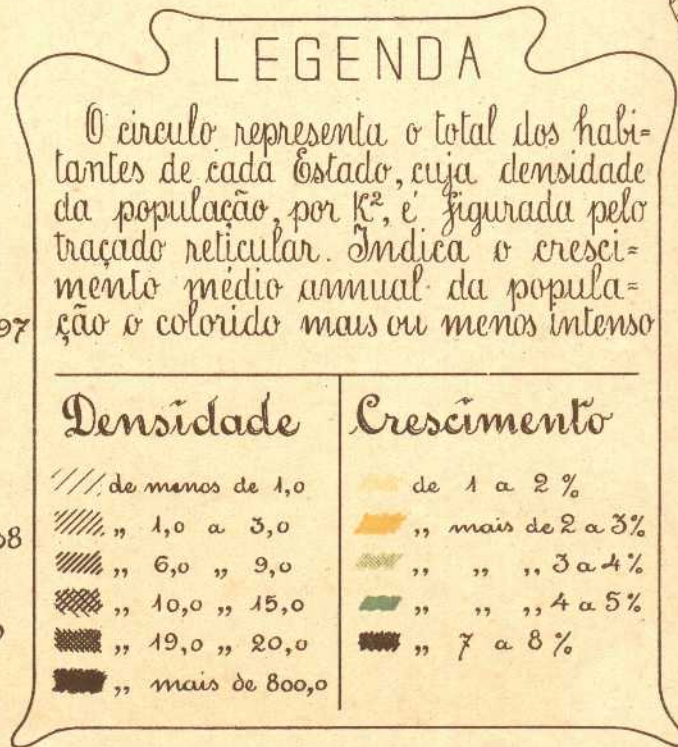 LEGENDA
O circulo representa o total dos habi=
tantes de cada Estado, cuja densidade
da população, por K², é figurada pelo
traçado reticular. Indica o cresci=
mento médio annual da popula=
ção o colorido mais ou menos intenso
97
Densidade
de menos de 1,0
„ 1,0 a 3,0
„ 6,0 „ 9,0
„ 10,0 „ 15,0
„ 19,0 „ 20,0
„ mais de 800,0
Crescimento
de 1 a 2 %
„ mais de 2 a 3%
„ „ „ 3 a 4%
„ „ „ 4 a 5%
„ 7 a 8 %